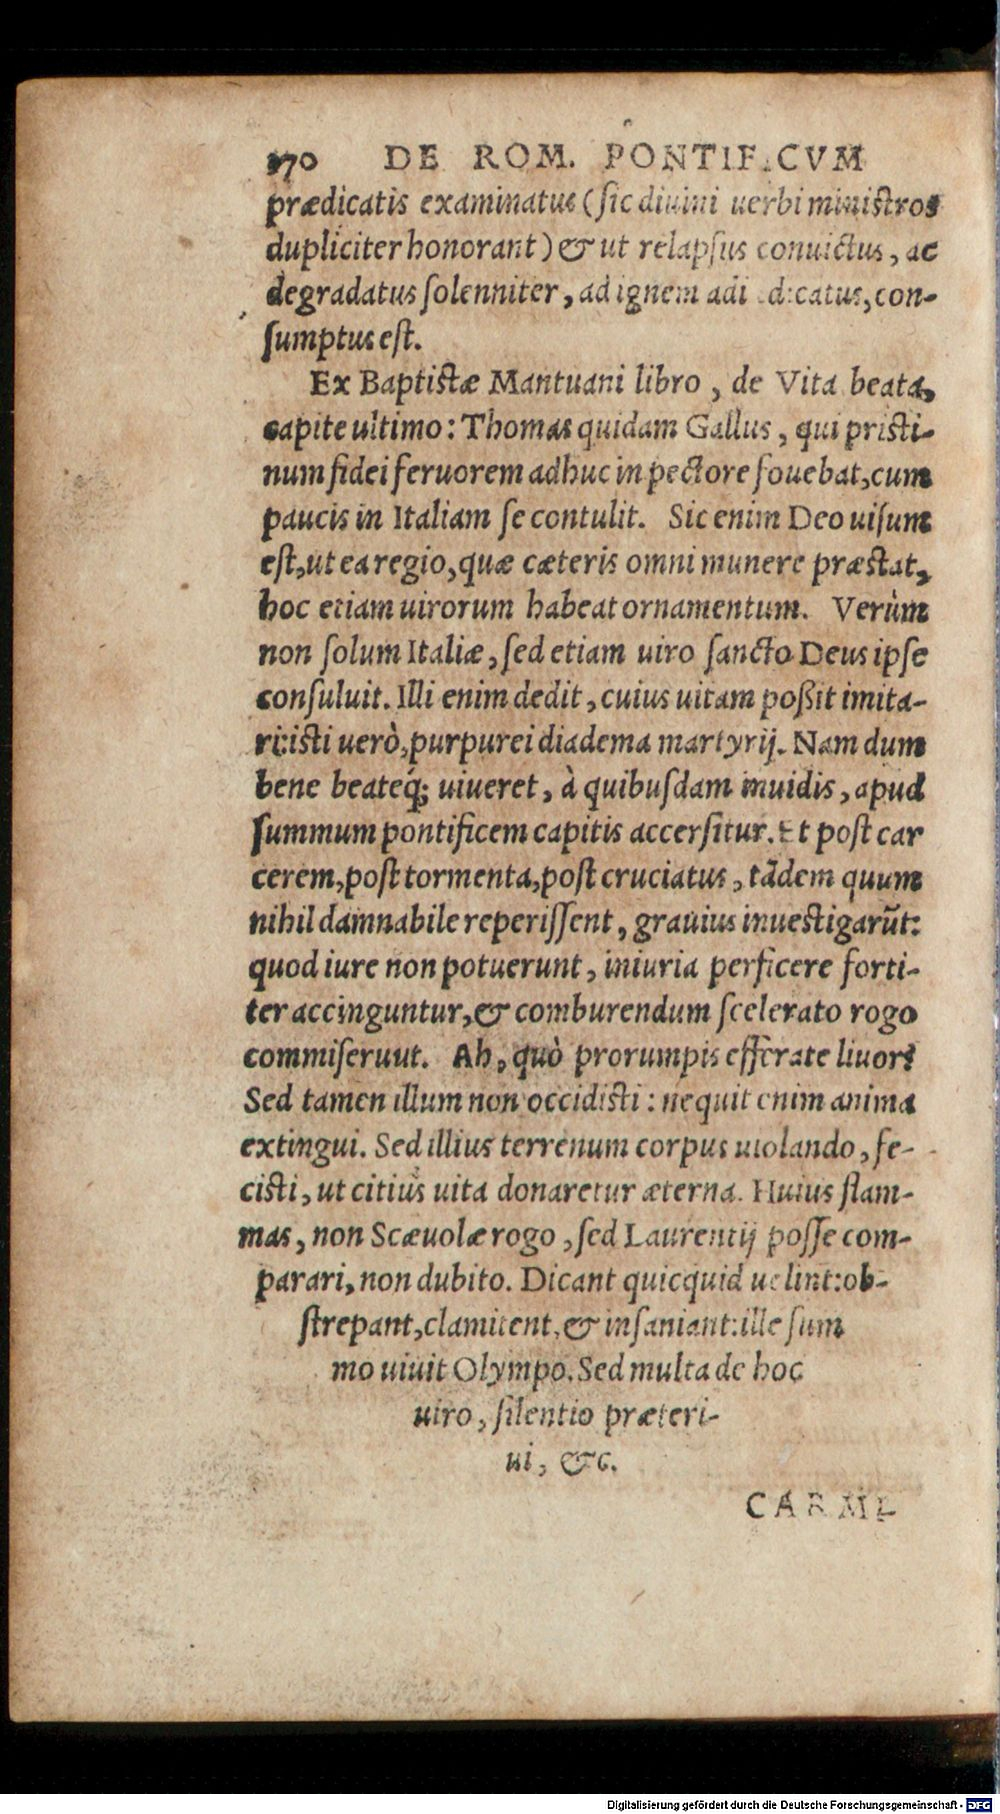 170 DE ROM. PONTIFICVM
prædicatis examinatus (ſic diuini uerbi miniſtros
dupliciter honorant) & ut relapſus conuictus, ac
degradatus ſolenniter, ad ignem adiudicatus, con-
ſumptus eſt.
Ex Baptiſtæ Mantuani libro, de Vita beata,
capite ultimo: Thomas quidam Gallus, qui priſti-
num fidei feruorem adhuc in pectore fouebat, cum
paucis in Italiam ſe contulit. Sic enim Deo uiſum
eſt, ut ea regio, quæ cæteris omni munere præſtat,
hoc etiam uirorum habeat ornamentum. Verùm
non ſolum Italiæ, ſed etiam uiro ſancto Deus ipſe
conſuluit. Illi enim dedit, cuius uitam poßit imita-
ri: iſti uerò, purpurei diadema martyrij. Nam dum
bene beateq́; uiueret, à quibuſdam inuidis, apud
ſummum pontificem capitis accerſitur. Et poſt car
cerem, poſt tormenta, poſt cruciatus, tãdem quum
nihil damnabile reperiſſent, grauius inueſtigarũt:
quod iure non potuerunt, iniuria perficere forti-
ter accinguntur, & comburendum ſcelerato rogo
commiſeruut. Ah, quò prorumpis efferate liuor?
Sed tamen illum non occidiſti: nequit enim anima
extingui. Sed illius terrenum corpus uiolando, fe-
ciſti, ut citius uita donaretur æterna. Huius flam-
mas, non Scæuolæ rogo, ſed Laurentij poſſe com-
parari, non dubito. Dicant quicquid uelint: ob-
ſtrepant, clamitent, & inſaniant: ille ſum
mo uiuit Olympo. Sed multa de hoc
uiro, ſilentio præteri-
ui, &c.
CARMI-
Digitalisierung gefördert durch die Deutsche Forschungsgemeinschaft - DFG